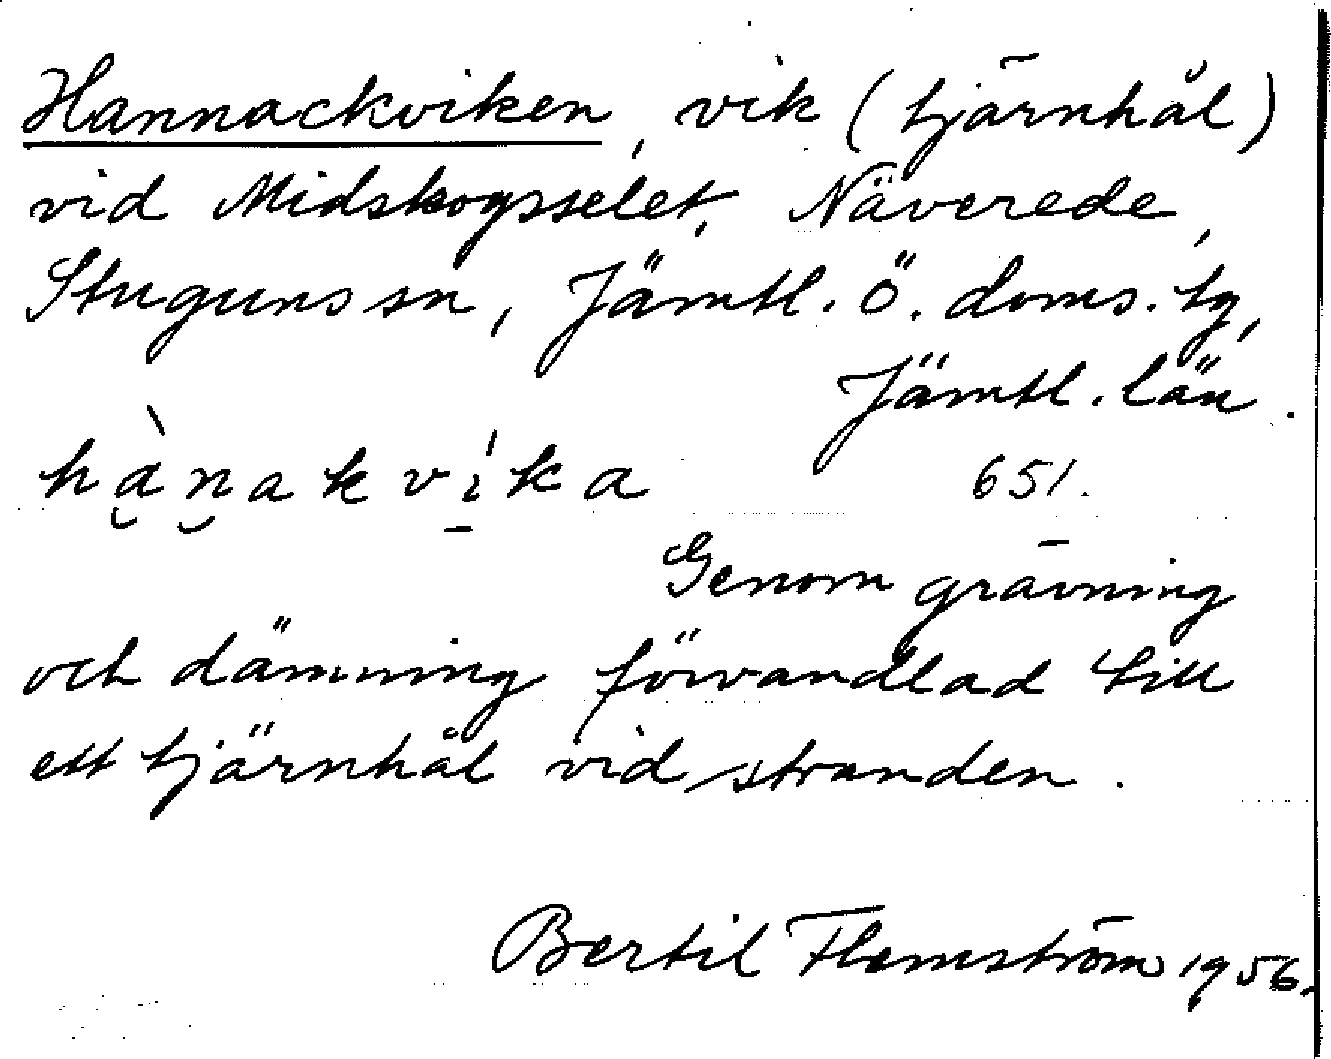 Hannackviken, vik (tjärnhål)
vid Midskogsselet, Näverede,
Stuguns sn, Jämtl. ö. doms. tg,
Jämtl. län.
hànakvíka 651.
Genom grävning
och dämning förvandlad till
ett tjärnhål vid stranden.
Bertil Flemström 1956.